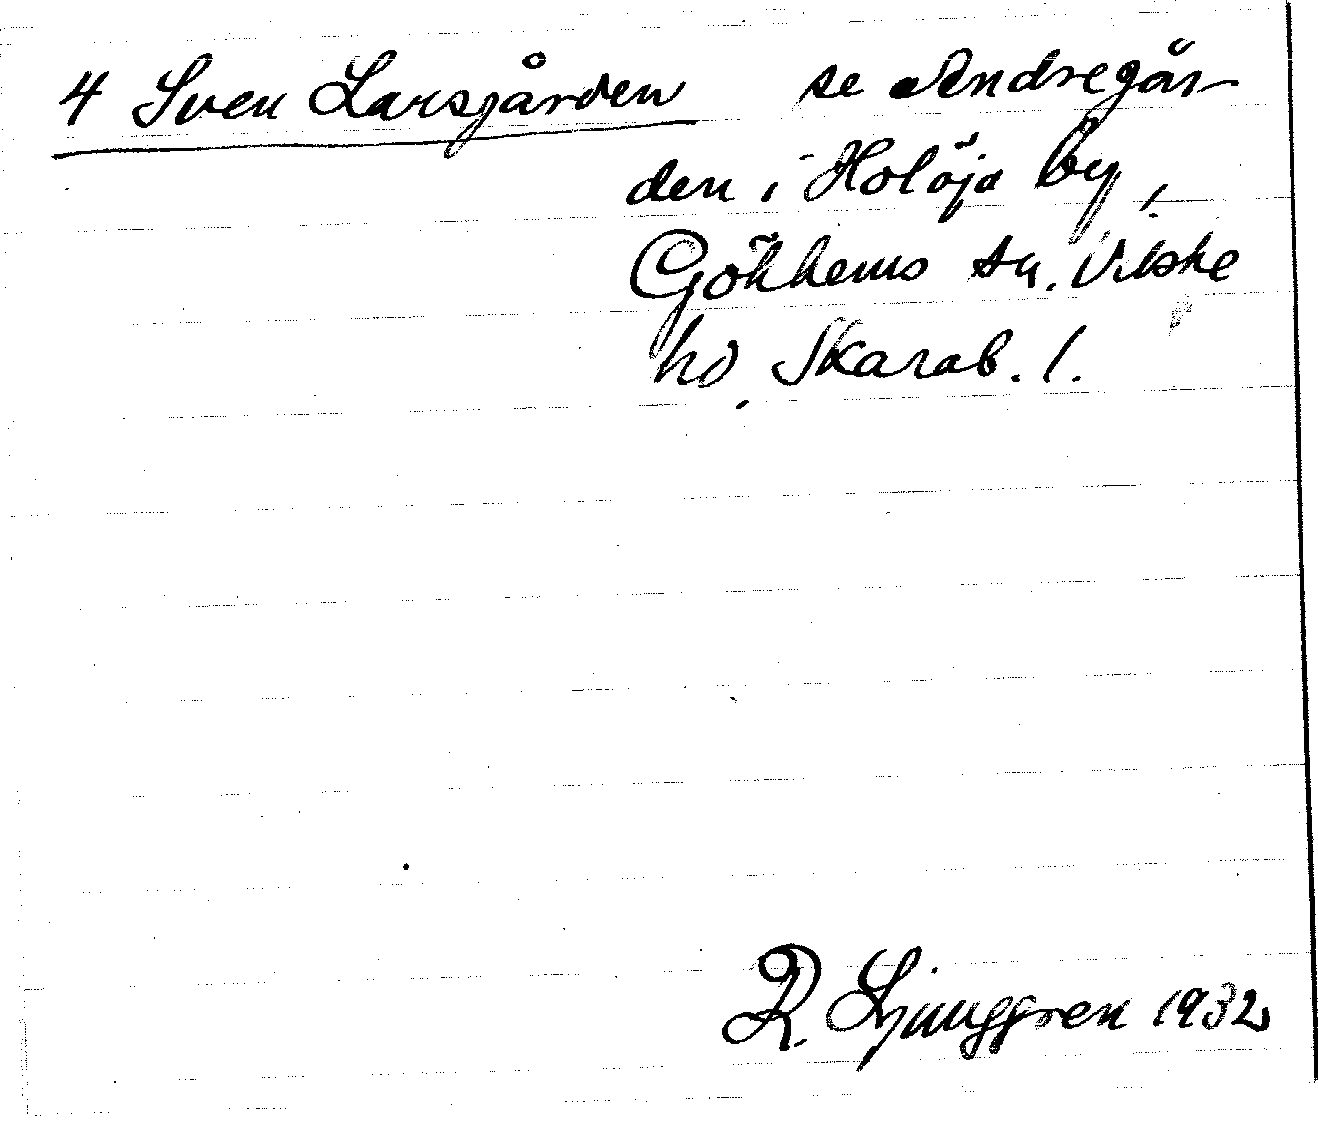 4 Sven Larsgården se Andregår-
den i Holöja by,
Gökhems sn. Vilske
hd. Skarab. l.
R. Ljunggren 1932